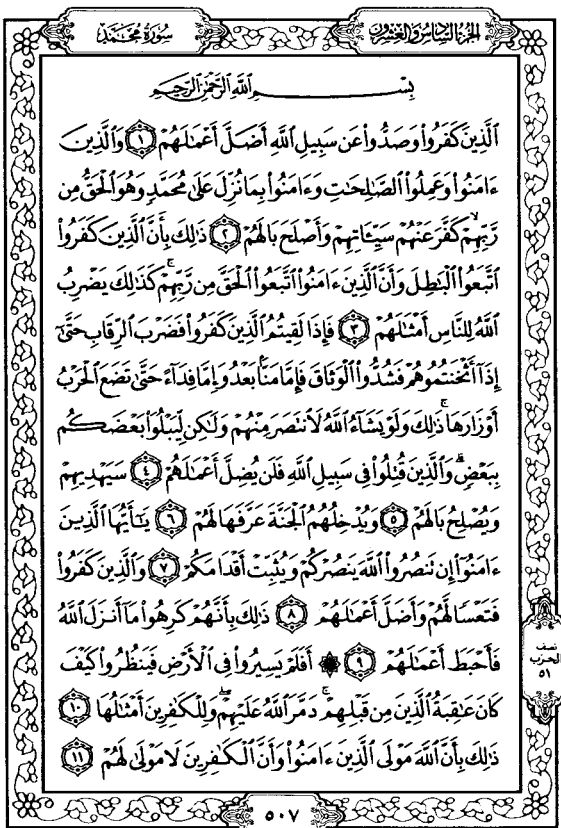 الجُزْءُ السَّادِسُ وَالعِشْرُونَ
سُورَةُ مُحَمَّد
بِسْمِ ٱللَّهِ ٱلرَّحْمَٰنِ ٱلرَّحِيمِ
ٱلَّذِينَ كَفَرُوا۟ وَصَدُّوا۟ عَن سَبِيلِ ٱللَّهِ أَضَلَّ أَعْمَٰلَهُمْ ١ وَٱلَّذِينَ
ءَامَنُوا۟ وَعَمِلُوا۟ ٱلصَّٰلِحَٰتِ وَءَامَنُوا۟ بِمَا نُزِّلَ عَلَىٰ مُحَمَّدٍ وَهُوَ ٱلْحَقُّ مِن
رَّبِّهِمْ ۙ كَفَّرَ عَنْهُمْ سَيِّـَٔاتِهِمْ وَأَصْلَحَ بَالَهُمْ ٢ ذَٰلِكَ بِأَنَّ ٱلَّذِينَ كَفَرُوا۟
ٱتَّبَعُوا۟ ٱلْبَٰطِلَ وَأَنَّ ٱلَّذِينَ ءَامَنُوا۟ ٱتَّبَعُوا۟ ٱلْحَقَّ مِن رَّبِّهِمْ ۚ كَذَٰلِكَ يَضْرِبُ
ٱللَّهُ لِلنَّاسِ أَمْثَٰلَهُمْ ٣ فَإِذَا لَقِيتُمُ ٱلَّذِينَ كَفَرُوا۟ فَضَرْبَ ٱلرِّقَابِ حَتَّىٰٓ
إِذَآ أَثْخَنتُمُوهُمْ فَشُدُّوا۟ ٱلْوَثَاقَ فَإِمَّا مَنًّۢا بَعْدُ وَإِمَّا فِدَآءً حَتَّىٰ تَضَعَ ٱلْحَرْبُ
أَوْزَارَهَا ۚ ذَٰلِكَ وَلَوْ يَشَآءُ ٱللَّهُ لَٱنتَصَرَ مِنْهُمْ وَلَٰكِن لِّيَبْلُوَا۟ بَعْضَكُم
بِبَعْضٍ ۗ وَٱلَّذِينَ قُتِلُوا۟ فِى سَبِيلِ ٱللَّهِ فَلَن يُضِلَّ أَعْمَٰلَهُمْ ٤ سَيَهْدِيهِمْ
وَيُصْلِحُ بَالَهُمْ ٥ وَيُدْخِلُهُمُ ٱلْجَنَّةَ عَرَّفَهَا لَهُمْ ٦ يَٰٓأَيُّهَا ٱلَّذِينَ
ءَامَنُوٓا۟ إِن تَنصُرُوا۟ ٱللَّهَ يَنصُرْكُمْ وَيُثَبِّتْ أَقْدَامَكُمْ ٧ وَٱلَّذِينَ كَفَرُوا۟
فَتَعْسًا لَّهُمْ وَأَضَلَّ أَعْمَٰلَهُمْ ٨ ذَٰلِكَ بِأَنَّهُمْ كَرِهُوا۟ مَآ أَنزَلَ ٱللَّهُ
فَأَحْبَطَ أَعْمَٰلَهُمْ ٩ ۞ أَفَلَمْ يَسِيرُوا۟ فِى ٱلْأَرْضِ فَيَنظُرُوا۟ كَيْفَ
كَانَ عَٰقِبَةُ ٱلَّذِينَ مِن قَبْلِهِمْ ۚ دَمَّرَ ٱللَّهُ عَلَيْهِمْ ۖ وَلِلْكَٰفِرِينَ أَمْثَٰلُهَا ١٠
ذَٰلِكَ بِأَنَّ ٱللَّهَ مَوْلَى ٱلَّذِينَ ءَامَنُوا۟ وَأَنَّ ٱلْكَٰفِرِينَ لَا مَوْلَىٰ لَهُمْ ١١
نصف
الحزب
٥١
٥٠٧